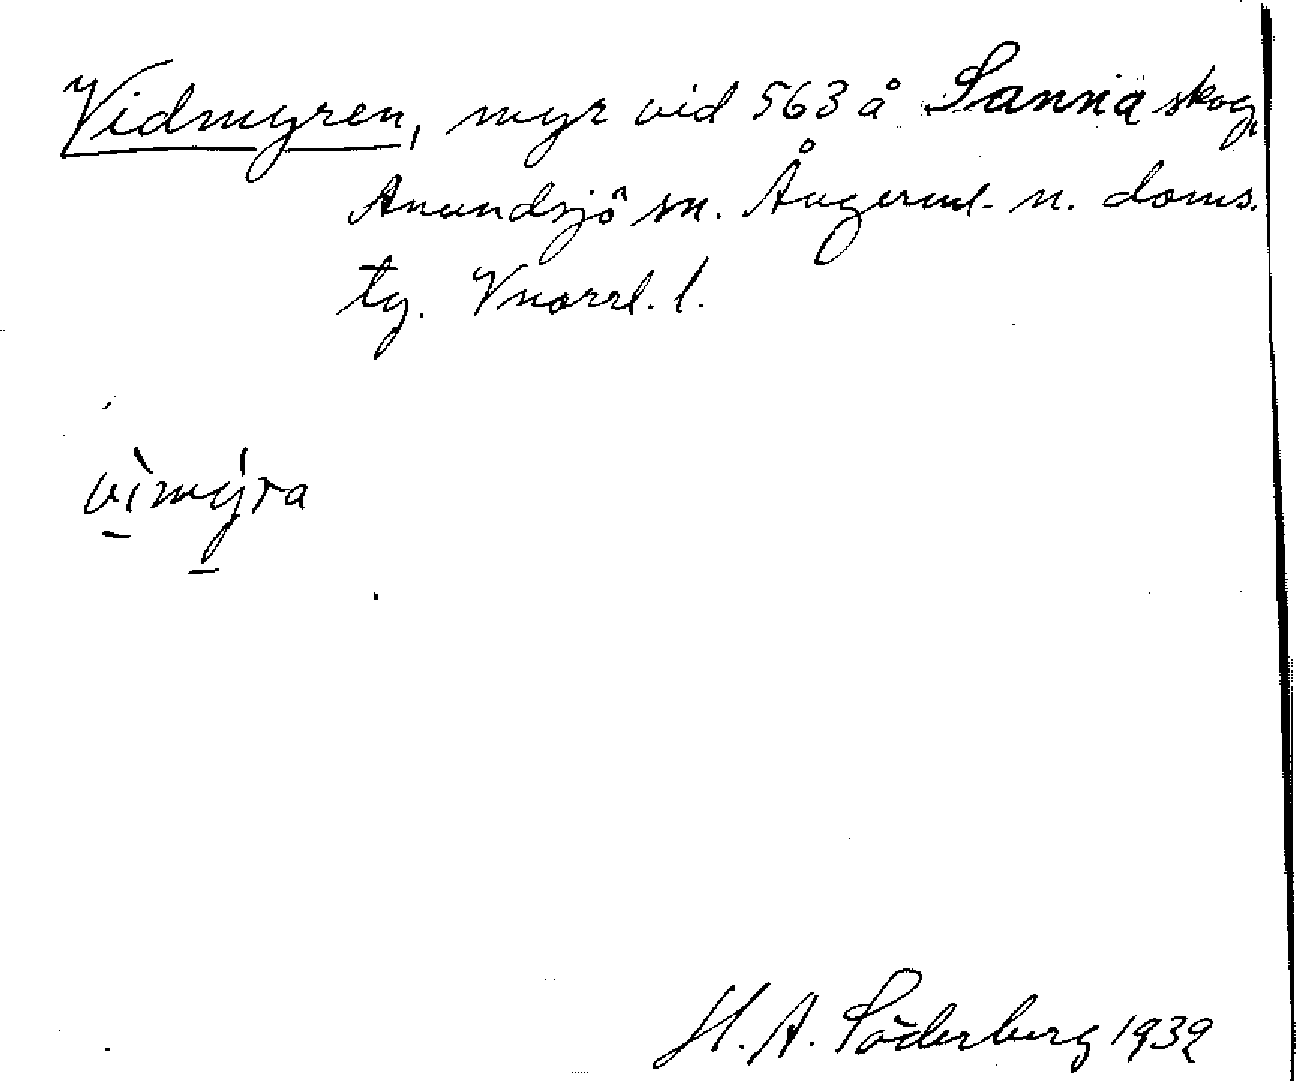 Vidmyren, myr vid 563 å Sanna skog,
Anundsjö sn. Ångerml. n. doms.
tg. Vnorrl. l.
vìmýra
H. A. Söderberg 1932